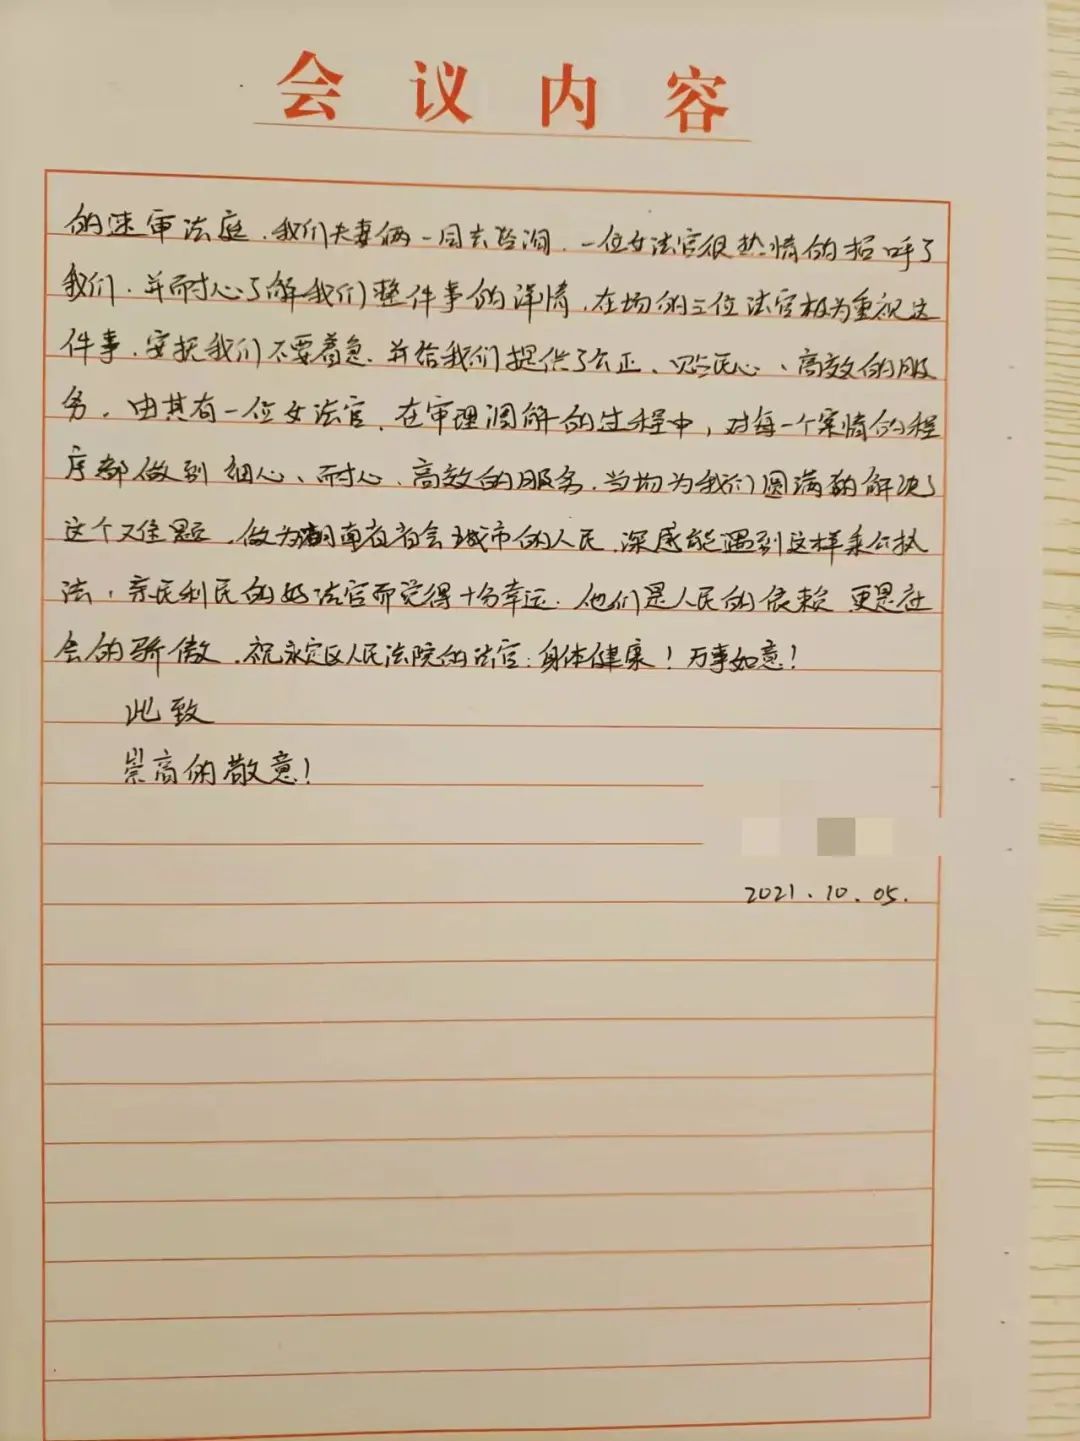 会议内容
的速审法庭，我们夫妻俩一同去咨询，一位女法官很热情的招呼了
我们，并耐心了解我们整件事的详情，在场的三位法官极为重视这
件事，安抚我们不要着急，并给我们提供了公正、贴民心、高效的服
务，由其有一位女法官，在审理调解的过程中，对每一个案情的程
序都做到细心、耐心、高效的服务，当场为我们圆满的解决了
这个难题，做为湖南省省会城市的人民，深感能遇到这样秉公执
法，亲民利民的好法官而觉得十分幸运，他们是人民的依赖 更是社
会的骄傲，祝永定区人民法院的法官：身体健康！万事如意！
此致
崇高的敬意！
2021.10.05.